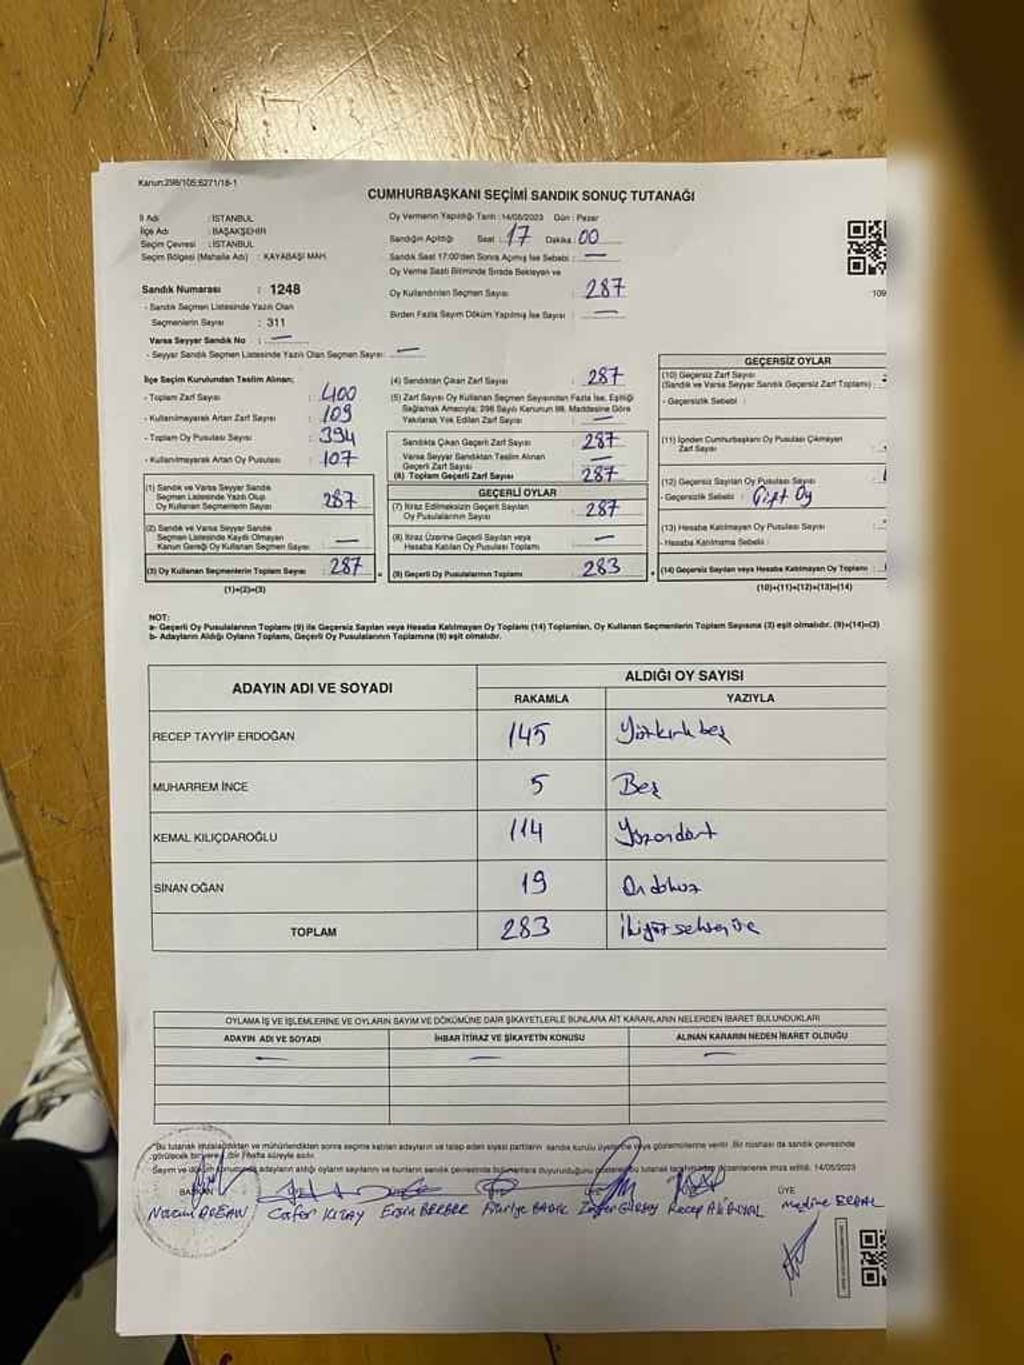 Kanun:298/105;6271/18-1
CUMHURBAŞKANI SEÇİMİ SANDIK SONUÇ TUTANAĞI
İl Adı : İSTANBUL
İlçe Adı : BAŞAKŞEHİR
Seçim Çevresi : İSTANBUL
Seçim Bölgesi (Mahalle Adı) : KAYABAŞI MAH.
Oy Vermenin Yapıldığı Tarih : 14/05/2023 Gün : Pazar
Sandığın Açıldığı Saat : 17 Dakika : 00
Sandık Saat 17:00'den Sonra Açılmış İse Sebebi : —
Oy Verme Saati Bitiminde Sırada Bekleyen ve
Oy Kullandırılan Seçmen Sayısı : 287
Birden Fazla Sayım Döküm Yapılmış İse Sayısı : —
109
Sandık Numarası : 1248
- Sandık Seçmen Listesinde Yazılı Olan
Seçmenlerin Sayısı : 311
Varsa Seyyar Sandık No : —
- Seyyar Sandık Seçmen Listesinde Yazılı Olan Seçmen Sayısı : —
İlçe Seçim Kurulundan Teslim Alınan;
- Toplam Zarf Sayısı : 400
- Kullanılmayarak Artan Zarf Sayısı : 109
- Toplam Oy Pusulası Sayısı : 394
- Kullanılmayarak Artan Oy Pusulası : 107
(1) Sandık ve Varsa Seyyar Sandık
Seçmen Listesinde Yazılı Olup
Oy Kullanan Seçmenlerin Sayısı : 287
(2) Sandık ve Varsa Seyyar Sandık
Seçmen Listesinde Kayıtlı Olmayan
Kanun Gereği Oy Kullanan Seçmen Sayısı : —
(3) Oy Kullanan Seçmenlerin Toplam Sayısı : 287
(1)+(2)=(3)
(4) Sandıktan Çıkan Zarf Sayısı : 287
(5) Zarf Sayısı Oy Kullanan Seçmen Sayısından Fazla İse, Eşitliği
Sağlamak Amacıyla; 298 Sayılı Kanunun 98. Maddesine Göre
Yakılarak Yok Edilen Zarf Sayısı : —
Sandıkta Çıkan Geçerli Zarf Sayısı : 287
Varsa Seyyar Sandıktan Teslim Alınan
Geçerli Zarf Sayısı : —
(6) Toplam Geçerli Zarf Sayısı : 287
GEÇERLİ OYLAR
(7) İtiraz Edilmeksizin Geçerli Sayılan
Oy Pusulalarının Sayısı : 287
(8) İtiraz Üzerine Geçerli Sayılan veya
Hesaba Katılan Oy Pusulası Toplamı : —
(9) Geçerli Oy Pusulalarının Toplamı : 283
GEÇERSİZ OYLAR
(10) Geçersiz Zarf Sayısı
(Sandık ve Varsa Seyyar Sandık Geçersiz Zarf Toplamı) :
- Geçersizlik Sebebi :
(11) İçinden Cumhurbaşkanı Oy Pusulası Çıkmayan
Zarf Sayısı
(12) Geçersiz Sayılan Oy Pusulası Sayısı
- Geçersizlik Sebebi : Çift Oy
(13) Hesaba Katılmayan Oy Pusulası Sayısı
- Hesaba Katılmama Sebebi :
(14) Geçersiz Sayılan veya Hesaba Katılmayan Oy Toplamı :
(10)+(11)+(12)+(13)=(14)
NOT:
a- Geçerli Oy Pusulalarının Toplamı (9) ile Geçersiz Sayılan veya Hesaba Katılmayan Oy Toplamı (14) Toplamları, Oy Kullanan Seçmenlerin Toplam Sayısına (3) eşit olmalıdır. (9)+(14)=(3)
b- Adayların Aldığı Oyların Toplamı, Geçerli Oy Pusulalarının Toplamına (9) eşit olmalıdır.
ADAYIN ADI VE SOYADI
ALDIĞI OY SAYISI
RAKAMLA YAZIYLA
RECEP TAYYİP ERDOĞAN 145 Yüzkırkbeş
MUHARREM İNCE 5 Beş
KEMAL KILIÇDAROĞLU 114 Yüzondört
SİNAN OĞAN 19 Ondokuz
TOPLAM 283 İkiyüzseksenüç
OYLAMA İŞ VE İŞLEMLERİNE VE OYLARIN SAYIM VE DÖKÜMÜNE DAİR ŞİKAYETLERLE BUNLARA AİT KARARLARIN NELERDEN İBARET BULUNDUKLARI
ADAYIN ADI VE SOYADI İHBAR İTİRAZ VE ŞİKAYETİN KONUSU ALINAN KARARIN NEDEN İBARET OLDUĞU
— — —
"Bu tutanak imzalandıktan ve mühürlendikten sonra seçime katılan adayların ve talep eden siyasi partilerin sandık kurulu üyelerine veya gözlemcilerine verilir. Bir nüshası da sandık çevresinde
görülecek bir yere bir hafta süreyle asılır.
Sayım ve döküm sonucunda adayların aldığı oyların sayılarını ve bunların sandık çevresinde bulunanlara duyurulduğunu gösteren bu tutanak tarafımızdan düzenlenerek imza edildi. 14/05/2023
BAŞKAN
ÜYE
Cafer KIZAY Ersin BERBER Zafer GÜRSOY Recep Ali Medine ERDAL